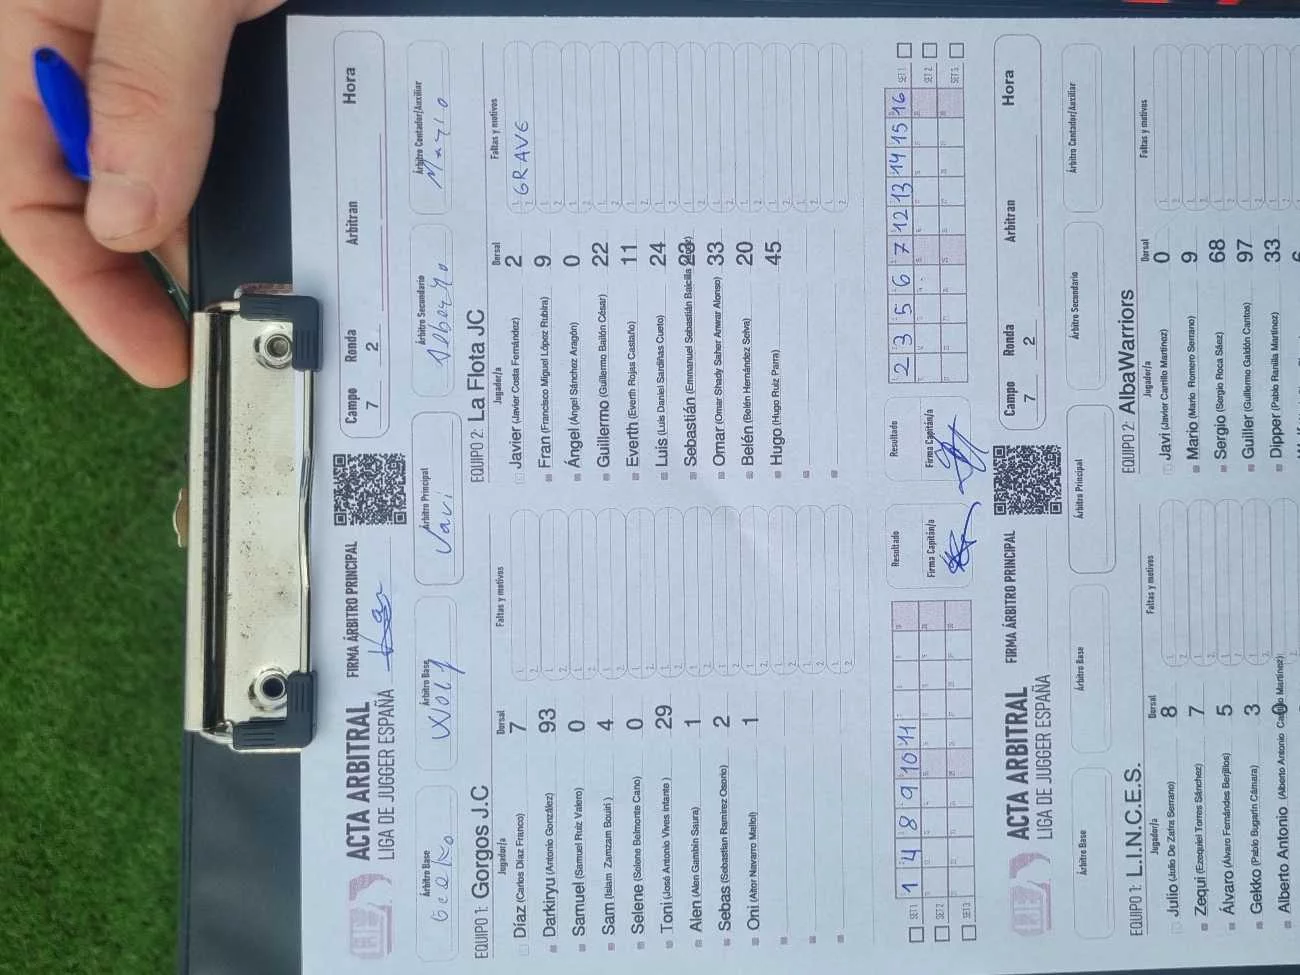 ACTA ARBITRAL
LIGA DE JUGGER ESPAÑA
FIRMA ÁRBITRO PRINCIPAL
Campo Ronda Arbitran Hora
7 2
Árbitro Base Árbitro Base Árbitro Principal Árbitro Secundario Árbitro Contador/Auxiliar
Gecko Wolf Javi Mario
EQUIPO 1: Gorgos J.C
Jugador/a Dorsal Faltas y motivos
Díaz (Carlos Díaz Franco) 7
Darkiryu (Antonio González) 93
Samuel (Samuel Ruiz Valero) 0
Sam (Islam Zamzam Bouiri ) 4
Selene (Solono Belmonte Cano) 0
Toni (José Antonio Vives Infante ) 29
Alen (Alen Gambín Saura) 1
Sebas (Sebastian Ramirez Osorio) 2
Oni (Aitor Navarro Mallol) 1
SET 1 1 4 8 9 10 11
SET 2
SET 3
Resultado
Firma Capitán/a
EQUIPO 2: La Flota JC
Jugador/a Dorsal Faltas y motivos
Javier (Javier Costa Fernández) 2 GRAVE
Fran (Francisco Miguel López Rubira) 9
Ángel (Ángel Sánchez Aragón) 0
Guillermo (Guillermo Bailón César) 22
Everth (Everth Rojas Castaño) 11
Luis (Luis Daniel Sardiñas Cueto) 24
Sebastián (Emmanuel Sebastián Balcilla
Omar (Omar Shady Saher Anwar Alonso) 33
Belén (Belén Hernández Selva) 20
Hugo (Hugo Ruiz Parra) 45
Resultado
Firma Capitán/a
2 3 5 6 7 12 13 14 15 16 SET 1
SET 2
SET 3
ACTA ARBITRAL
LIGA DE JUGGER ESPAÑA
FIRMA ÁRBITRO PRINCIPAL
Campo Ronda Arbitran Hora
7 2
Árbitro Base Árbitro Base Árbitro Principal Árbitro Secundario Árbitro Contador/Auxiliar
EQUIPO 1: L.I.N.C.E.S.
Jugador/a Dorsal Faltas y motivos
Julio (Julio De Zafra Serrano) 8
Zequi (Ezequiel Torres Sánchez) 7
Álvaro (Álvaro Fernándes Berjillos) 5
Gekko (Pablo Bugarín Cámara) 3
Alberto Antonio (Alberto Antonio Martínez) 0
EQUIPO 2: AlbaWarriors
Jugador/a Dorsal Faltas y motivos
Javi (Javier Carrillo Martínez) 0
Mario (Mario Romero Serrano) 9
Sergio (Sergio Roca Sáez) 68
Guiller (Guillermo Galdón Cantos) 97
Dipper (Pablo Ranilla Martínez) 33